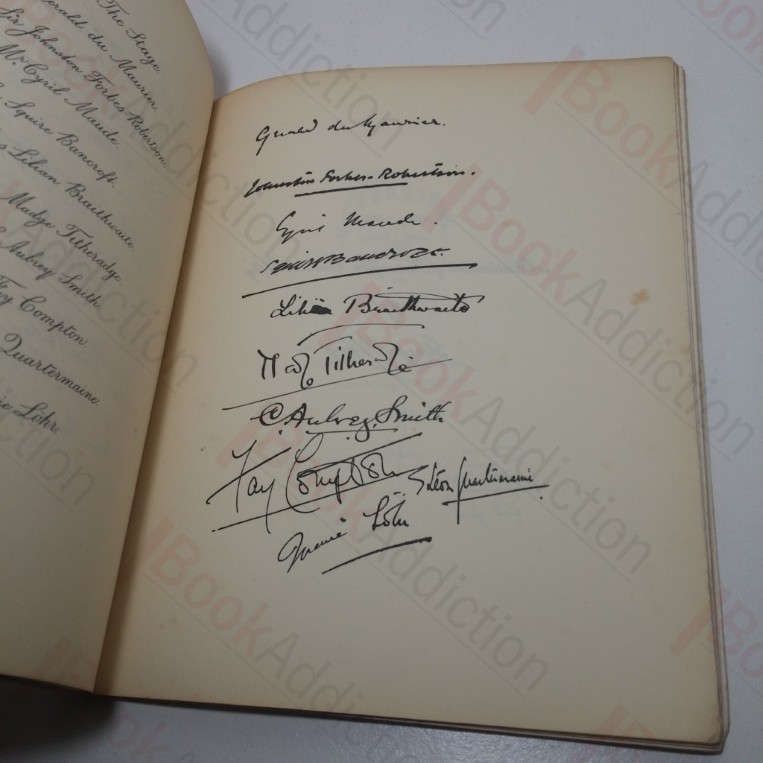 The Stage
erald du Maurier
Sir Johnston Forbes Robertson
Mr Cyril Maude.
Squire Bancroft.
s Lilian Braithwaite
Madge Titheradge
Aubrey Smith
y Compton
Quartermaine
ie Löhr
Gerald du Maurier.
Johnston Forbes-Robertson.
Cyril Maude.
Squire Bancroft.
Lilian Braithwaite
Madge Titheradge
C. Aubrey Smith
Fay Compton
Leon Quartermaine
Marie Löhr
BookAddiction